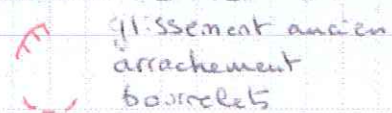 glissement ancien
arrachement
bourrelets